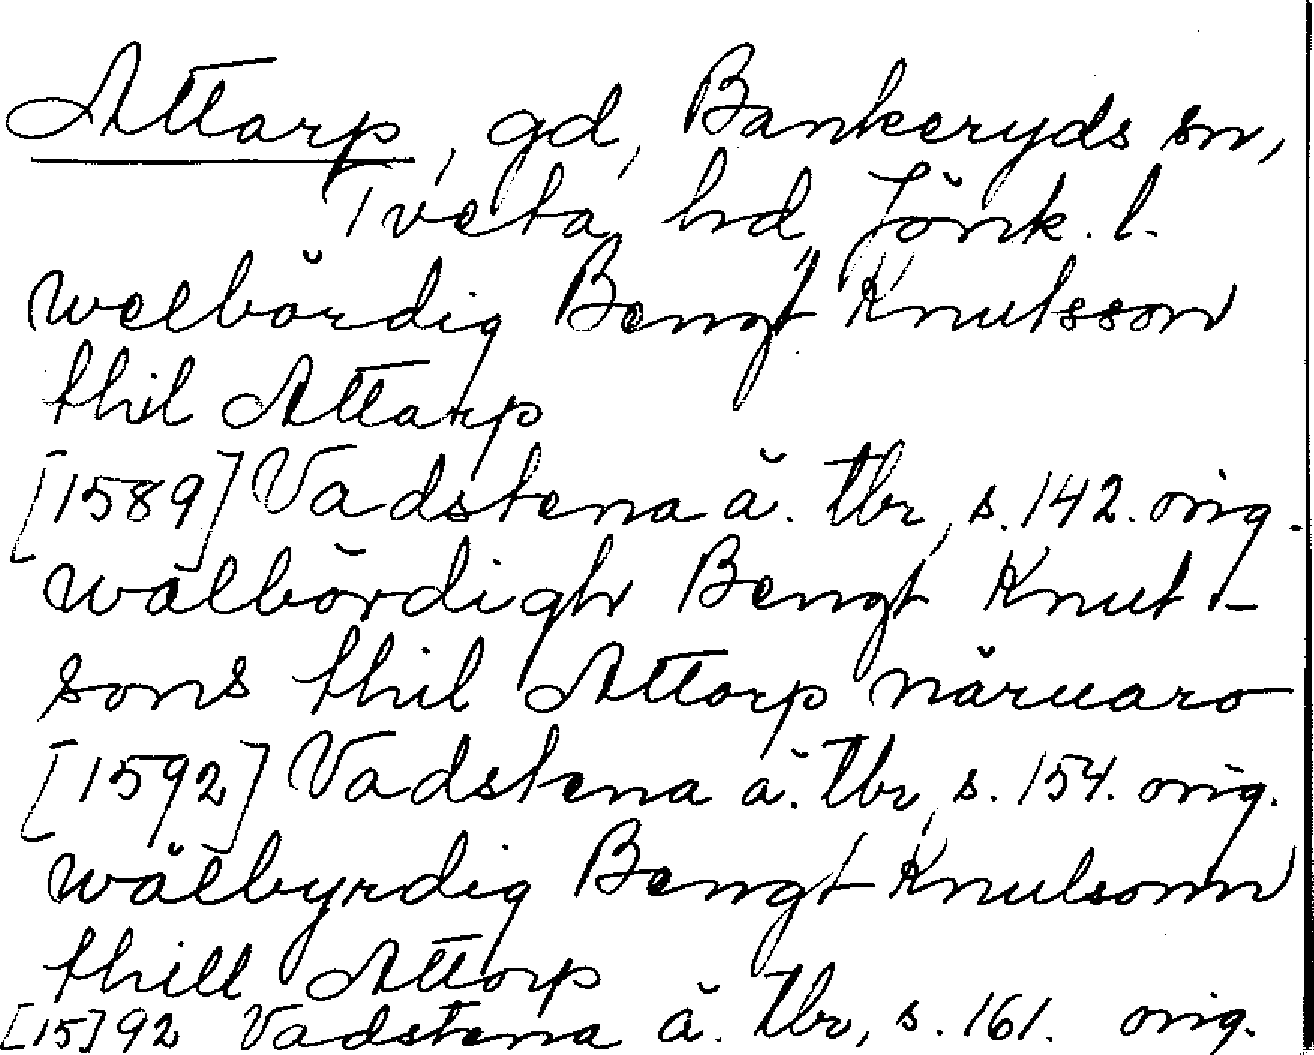 Attarp, gd, Bankeryds sn,
Tveta hd, Jönk. l.
welbördig Bengt Knutsson
thil Attarp
[1589] Vadstena ä. tbr, s. 142. orig.
wälbördigh Bengt Knut-
sons thil Attorp näruaro
[1592] Vadstena ä. tbr, s. 154. orig.
wälbyrdig Bengt Knutsonn
thill Attorp
[15]92 Vadstena ä. tbr, s. 161. orig.